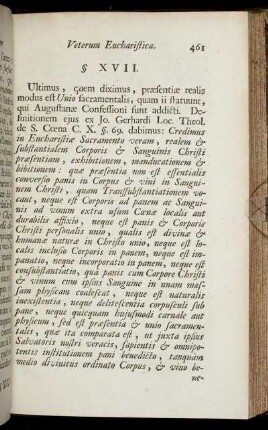 Veterum Eucharistica. 461
§ XVII.
Ultimus, quem diximus, præsentiæ realis
modus est Unio sacramentalis, quam ii statuunt,
qui Augustanæ Confessioni sunt addicti. De-
finitionem ejus ex Jo. Gerhardi Loc. Theol.
de S. Cœna C. X. §. 69. dabimus: Credimus
in Eucharistiæ Sacramento veram, realem &
substantialem Corporis & Sanguinis Christi
præsentiam, exhibitionem, manducationem &
bibitionem: quæ præsentia non est essentialis
conversio panis in Corpus & vini in Sangui-
nem Christi, quam Transsubstantiationem vo-
cant, neque est Corporis ad panem ac Sangui-
nis ad vinum extra usum Cœnæ localis aut
durabilis affixio, neque est panis & Corporis
Christi personalis unio, qualis est divinæ &
humanæ naturæ in Christo unio, neque est lo-
calis inclusio Corporis in panem, neque est im-
panatio, neque incorporatio in panem, neque est
consubstantiatio, qua panis cum Corpore Christi
& vinum cum ipsius Sanguine in unam mas-
sam physicam coalescat, neque est naturalis
inexistentia, neque delitescentia corpusculi sub
pane, neque quicquam hujusmodi carnale aut
physicum, sed est præsentia & unio sacramen-
talis, quæ ita comparata est, ut juxta ipsius
Salvatoris nostri veracis, sapientis & omnipo-
tentis institutionem pani benedicto, tanquam
medio divinitus ordinato Corpus, & vino be-
ne-